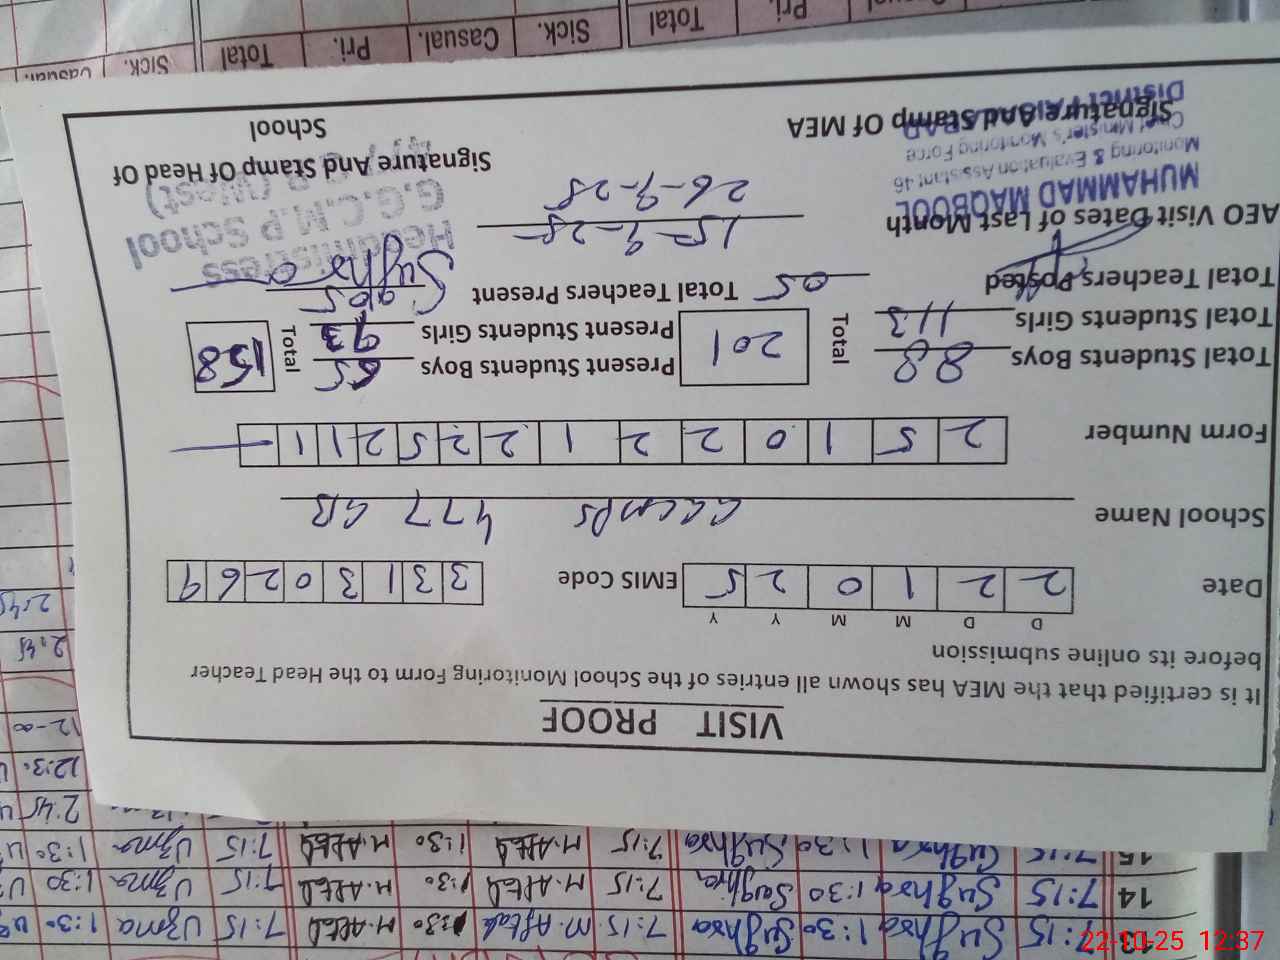 VISIT PROOF
It is certified that the MEA has shown all entries of the School Monitoring Form to the Head Teacher
before its online submission
D D M M Y Y
Date 2 2 1 0 2 5 EMIS Code 3 3 1 3 0 2 6 9
School Name GGCMPS 477 GB
Form Number 2 5 1 0 2 2 1 2 2 5 2 1 1
Total Students Boys 88 Total 201 Present Students Boys 65 Total 158
Total Students Girls 113 Present Students Girls 93
Total Teachers Posted 05 Total Teachers Present 05
Sughra
AEO Visit Dates of Last Month 15-9-25
26-9-25
MUHAMMAD MAQBOOL
Monitoring & Evaluation Assistant 46
Chief Minister's Monitoring Force
District FAISALABAD
Headmistress
G.G.C.M.P School
(West)
Signature And Stamp Of MEA
Signature And Stamp Of Head Of
School
Sick. Casual. Pri. Total Sick. Casual. Pri. Total
13 7:15 Sughra 1:30 Sughra 7:15 M.Aftab 1:30 M.Aftab 7:15 Uzma 1:30
14 7:15 Sughra 1:30 Sughra 7:15 M.Aftab 1:30 M.Aftab 7:15 Uzma 1:30
15 7:15 Sughra 1:30 Sughra 7:15 M.Aftab 1:30 M.Aftab 7:15 Uzma 1:30
2:45
12:30
12-00
2:45
2:45
22-10-25 12:37